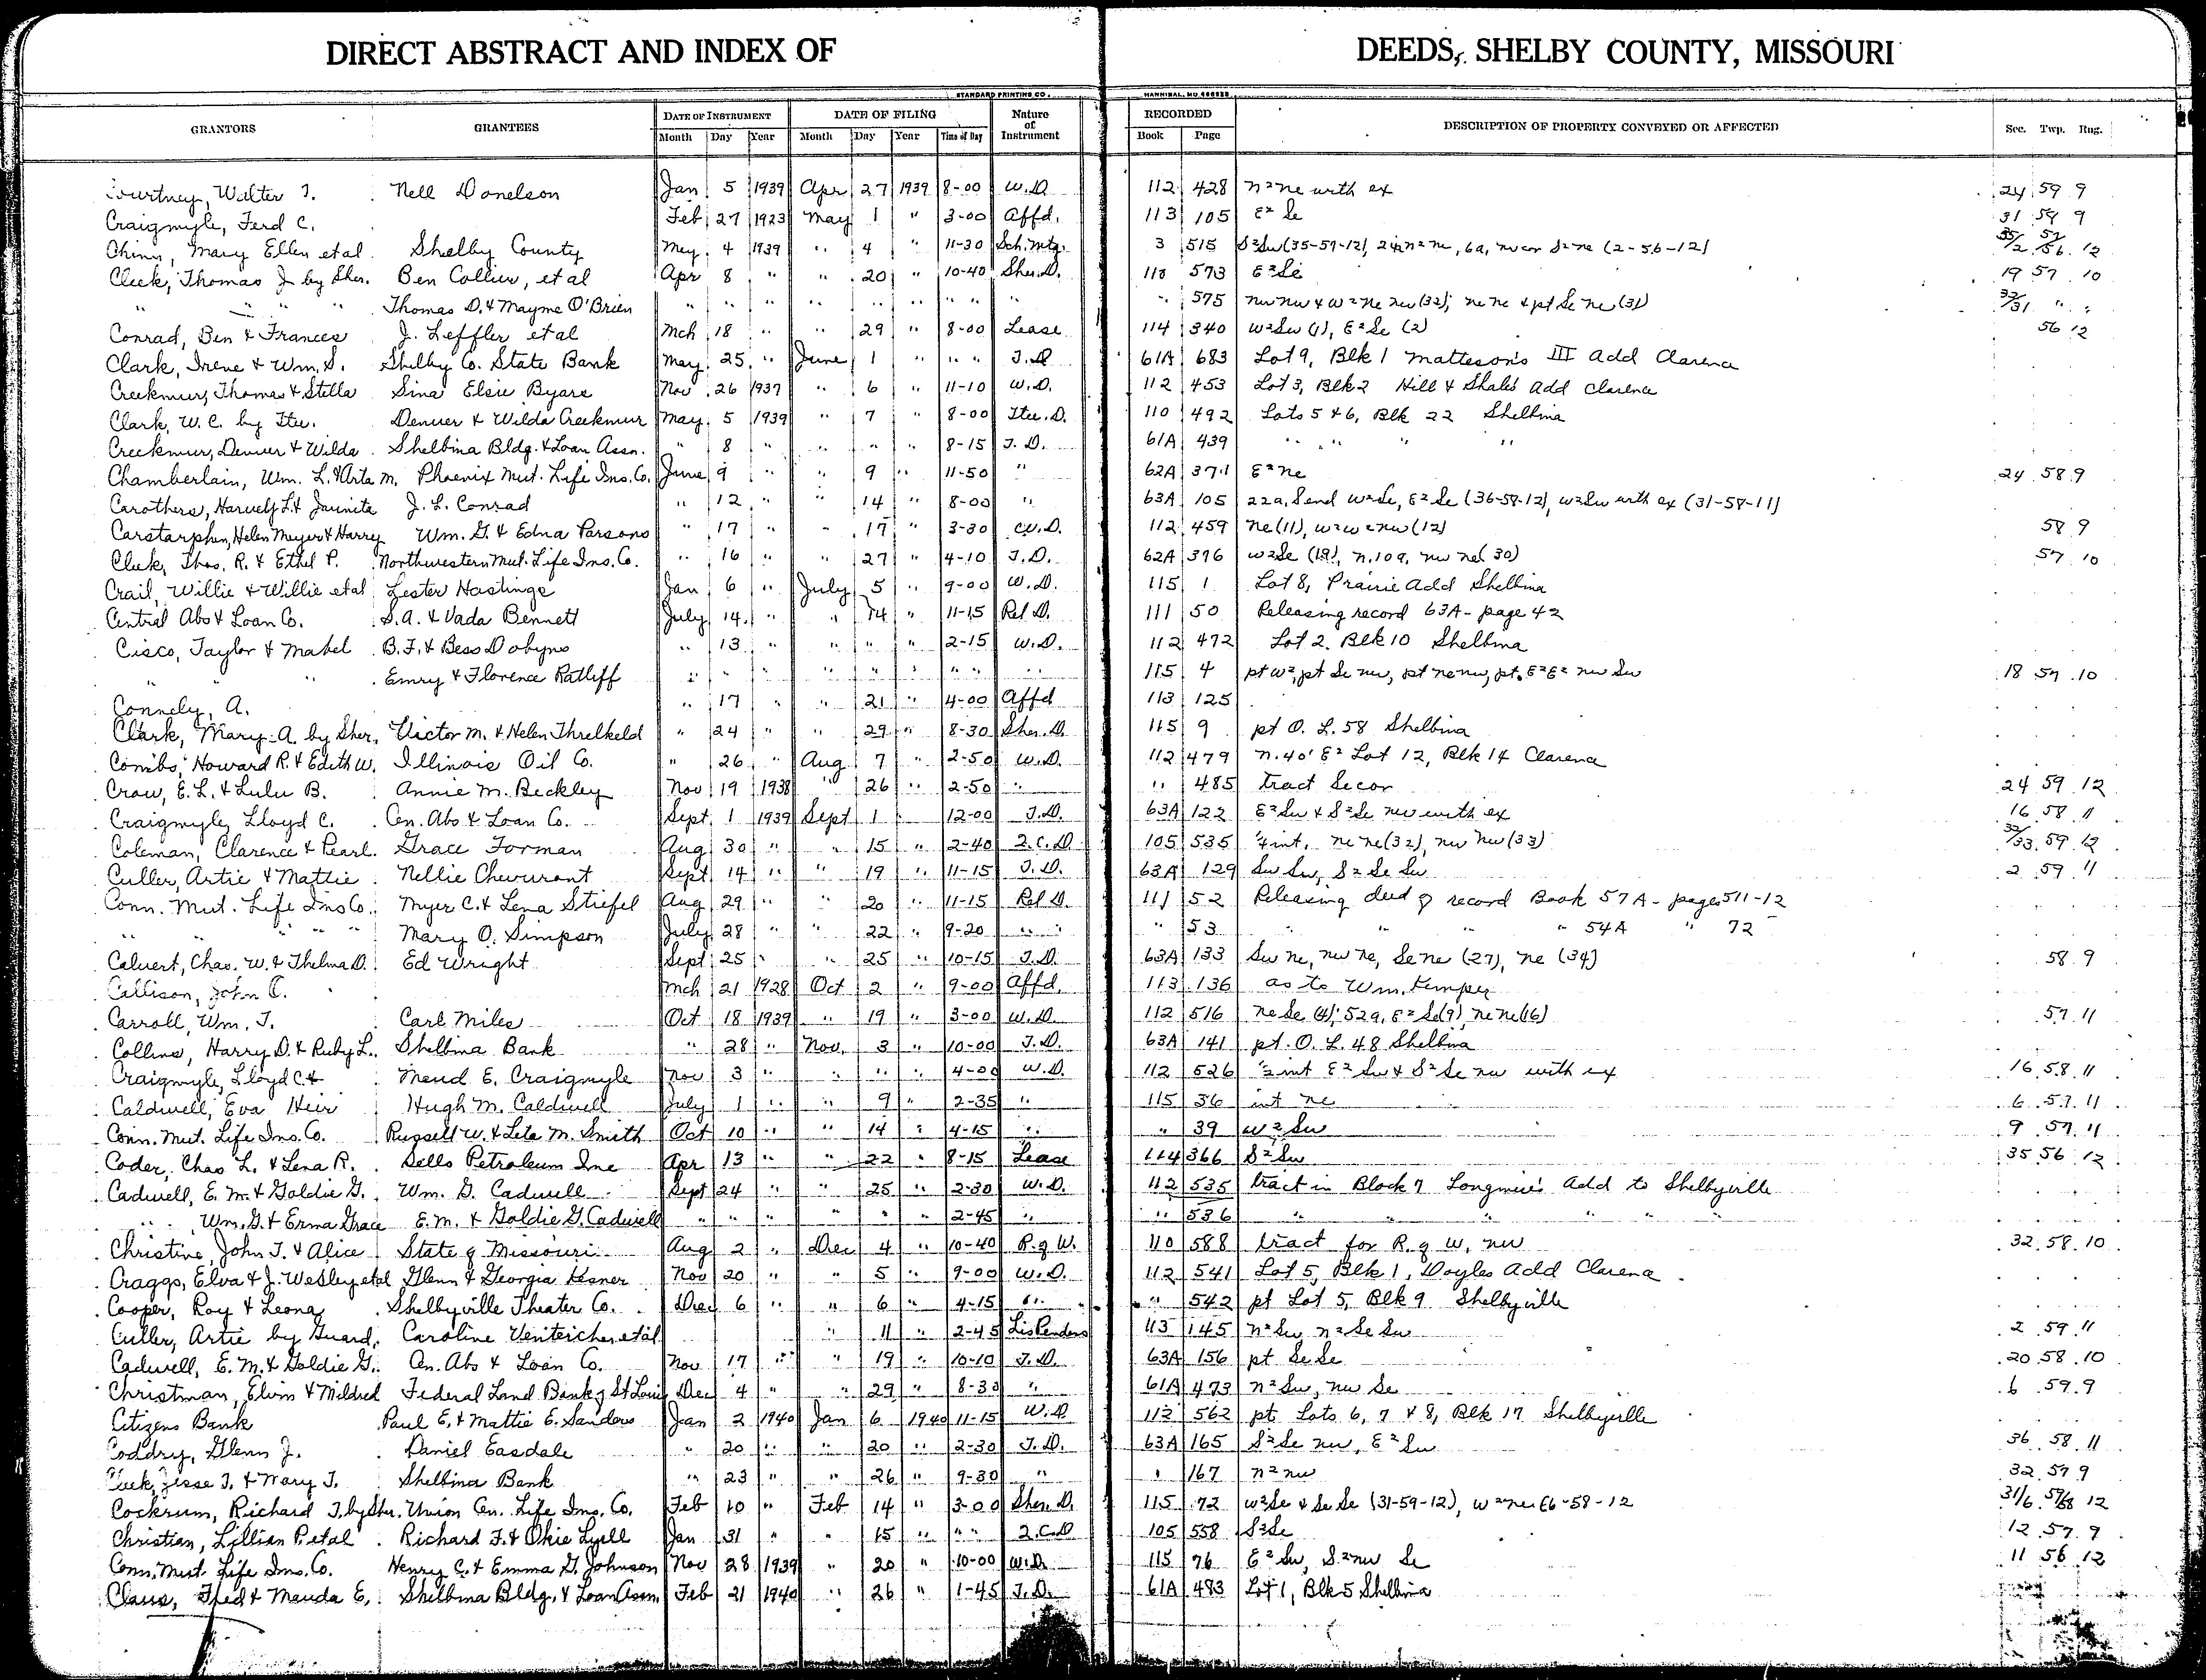 DIRECT ABSTRACT AND INDEX OF DEEDS, SHELBY COUNTY, MISSOURI
STANDARD PRINTING CO. HANNIBAL, MO
GRANTORS GRANTEES DATE OF INSTRUMENT DATE OF FILING Nature of Instrument RECORDED DESCRIPTION OF PROPERTY CONVEYED OR AFFECTED Sec. Twp. Rng.
Month Day Year Month Day Year Time of Day Book Page
Courtney, Walter T. Nell Donelson Jan 5 1939 Apr 27 1939 8-00 W.D. 112 428 N²NE with ex 24 59 9
Craigmyle, Ferd C. Feb 27 1923 May 1 " 3-00 Affd. 113 105 E² SE 31 59 9
Chinn, Mary Ellen etal Shelby County May 4 1939 " 4 " 11-30 Sch. Mtg. 3 515 S²SW (35-57-12), N²NE, 6a, NW cor S²NE (2-56-12) 35/2 57/56 12
Cleek, Thomas J by Sher. Ben Collier, et al Apr 8 " " 20 " 10-40 Sher. D. 110 573 E²SE 19 57 10
" " " Thomas D. & Mayme O'Brien " " " " " " " " " " 575 NW NW & W²NE NW (32); NE NE & pt SE NE (31) 32/31 " "
Conrad, Ben & Frances J. Leffler et al Mch 18 " " 29 " 8-00 Lease 114 340 W²SW (1), E²SE (2) 56 12
Clark, Irene & Wm. S. Shelby Co. State Bank May 25 " June 1 " " " T.D. 61A 683 Lot 9, Blk 1 Matteson's III Add Clarence
Creekmur, Thomas & Stella Sina Elsie Byars Nov 26 1937 " 6 " 11-10 W.D. 112 453 Lot 3, Blk 2 Hill & Shale's Add Clarence
Clark, W. C. by Ttee. Denver & Wilda Creekmur May 5 1939 " 7 " 8-00 Ttee. D. 110 492 Lots 5 & 6, Blk 22 Shelbina
Creekmur, Denver & Wilda Shelbina Bldg. & Loan Assn. " 8 " " " " 8-15 T.D. 61A 439 " " " "
Chamberlain, Wm. L. & Arta M. Phoenix Mut. Life Ins. Co. June 9 " " 9 " 11-50 " 62A 371 E²NE 24 58 9
Carothers, Harvely L. & Juanita J. L. Conrad " 12 " " 14 " 8-00 " 63A 105 22a, S end W²SE, E²SE (36-58-12), W²SW with ex (31-58-11)
Carstarphen, Helen Meyer & Harry Wm. G. & Edna Parsons " 17 " " 17 " 3-30 W.D. 112 459 NE (11), W²W²NW (12) 58 9
Cleek, Thos. R. & Ethel P. Northwestern Mut. Life Ins. Co. " 16 " " 27 " 4-10 T.D. 62A 376 W²SE (19), N. 10a, NW NE (30) 57 10
Crail, Willie & Willie etal Lester Hastings Jan 6 " July 5 " 9-00 W.D. 115 1 Lot 8, Prairie Add Shelbina
Central Abs & Loan Co. S. A. & Vada Bennett July 14 " " 14 " 11-15 Rel D. 111 50 Releasing record 63A - page 42
Cisco, Taylor & Mabel B. F. & Bess Dobyns " 13 " " " " 2-15 W.D. 112 472 Lot 2, Blk 10 Shelbina
" " Emry & Florence Ratliff " " " " " " " " " 115 4 pt W², pt SE NW, pt NE NW, pt. E²E² NW SW 18 57 10
Connely, A. " 17 " " 21 " 4-00 Affd 113 125
Clark, Mary A. by Sher. Victor M. & Helen Threlkeld " 24 " " 29 " 8-30 Sher. D. 115 9 pt O. L. 58 Shelbina
Combs, Howard R. & Edith W. Illinois Oil Co. " 26 " Aug 7 " 2-50 W.D. 112 479 N. 40' E² Lot 12, Blk 14 Clarence
Crow, E. L. & Lulu B. Annie M. Beckley Nov 19 1938 " 26 " 2-50 " " 485 tract SE cor 24 59 12
Craigmyle, Lloyd C. Cen. Abs & Loan Co. Sept 1 1939 Sept 1 12-00 T.D. 63A 122 E²SW & S²SE NW with ex 16 58 11
Coleman, Clarence & Pearl Grace Forman Aug 30 " " 15 " 2-40 Q.C.D. 105 535 ¼ int. NE NE (32), NW NW (33) 32/33 59 12
Culler, Artie & Mattie Nellie Chevurant Sept 14 " " 19 " 11-15 T.D. 63A 129 SW SW, S²SE SW 2 59 11
Conn. Mut. Life Ins Co. Myer C. & Lena Stiefel Aug 29 " " 20 " 11-15 Rel D. 111 52 Releasing deed of record Book 57A - pages 511-12
" " " " Mary O. Simpson July 28 " " 22 " 9-20 " " " 53 " " " " 54A " 72
Calvert, Chas. W. & Thelma D. Ed Wright Sept 25 " " 25 " 10-15 T.D. 63A 133 SW NE, NW NE, SE NE (27), NE (34) 58 9
Callison, John C. Mch 21 1928 Oct 2 " 9-00 Affd. 113 136 as to Wm. Kemper
Carroll, Wm. T. Carl Miles Oct 18 1939 " 19 " 3-00 W.D. 112 516 NE SE (4); 52a, E²SE (9), NE NE (16) 57 11
Collins, Harry D. & Ruby L. Shelbina Bank " 28 " Nov. 3 " 10-00 T.D. 63A 141 pt. O. L. 48 Shelbina
Craigmyle, Lloyd C. & Maud E. Craigmyle Nov 3 " " " " 4-00 W.D. 112 526 ½ int E²SW & S²SE NW with ex 16 58 11
Caldwell, Eva Heir Hugh M. Caldwell July 1 " " 9 " 2-35 " 115 36 int NE 6 57 11
Conn. Mut. Life Ins. Co. Russell W. & Leta M. Smith Oct 10 " " 14 " 4-15 " " 39 W²SW 9 57 11
Coder, Chas L. & Lena R. Sells Petroleum Inc Apr 13 " " 22 " 8-15 Lease 114 366 S²SW 35 56 12
Cadwell, E. M. & Goldie G. Wm. G. Cadwell Sept 24 " " 25 " 2-30 W.D. 112 535 tract in Block 7 Longmire's Add to Shelbyville
" Wm. G. & Erma Grace E. M. & Goldie G. Cadwell " " " " " " 2-45 " " 536 " " " " "
Christine, John T. & Alice State of Missouri Aug 2 " Dec 4 " 10-40 R. of W. 110 588 tract for R. of W. NW 32 58 10
Craggs, Elva & J. Wesley etal Glenn & Georgia Kesner Nov 20 " " 5 " 9-00 W.D. 112 541 Lot 5, Blk 1, Doyles Add Clarence
Cooper, Roy & Leona Shelbyville Theater Co. Dec 6 " " 6 " 4-15 " " 542 pt Lot 5, Blk 9 Shelbyville
Culler, Artie by Guard. Caroline Venteicher etal " 11 " 2-45 Lis Pendens 113 145 N²SW, N²SE SW 2 59 11
Cadwell, E. M. & Goldie G. Cen. Abs & Loan Co. Nov 17 " " 19 " 10-10 T.D. 63A 156 pt SE SE 20 58 10
Christman, Elvin & Mildred Federal Land Bank of St Louis Dec 4 " " 29 " 8-30 " 61A 473 N²SW, NW SE 6 59 9
Citizens Bank Paul E. & Mattie E. Sanders Jan 2 1940 Jan 6 1940 11-15 W.D. 112 562 pt Lots 6, 7 & 8, Blk 17 Shelbyville
Coddry, Glenn J. Daniel Easdale " 20 " " 20 " 2-30 T.D. 63A 165 S²SE NW, E²SW 36 58 11
Cleek, Jesse T. & Mary T. Shelbina Bank " 23 " " 26 " 9-30 " " 167 N²NW 32 57 9
Cockrum, Richard T. by Sher. Union Cen. Life Ins. Co. Feb 10 " Feb 14 " 3-00 Sher. D. 115 72 W²SE & SE SE (31-59-12), W²NE (6-58-12 31/6 12
Christian, Lillian P. etal Richard F. & Okie Lyell Jan 31 " " 15 " " " Q.C.D 105 558 S²SE 12 57 9
Conn. Mut. Life Ins. Co. Henry C. & Emma G. Johnson Nov 28 1939 " 20 " 10-00 W.D. 115 76 E²SW, S²NW SE 11 56 12
Claus, Fred & Mauda E. Shelbina Bldg. & Loan Assn. Feb 21 1940 " 26 " 1-45 T.D. 61A 483 Lot 1, Blk 5 Shelbina